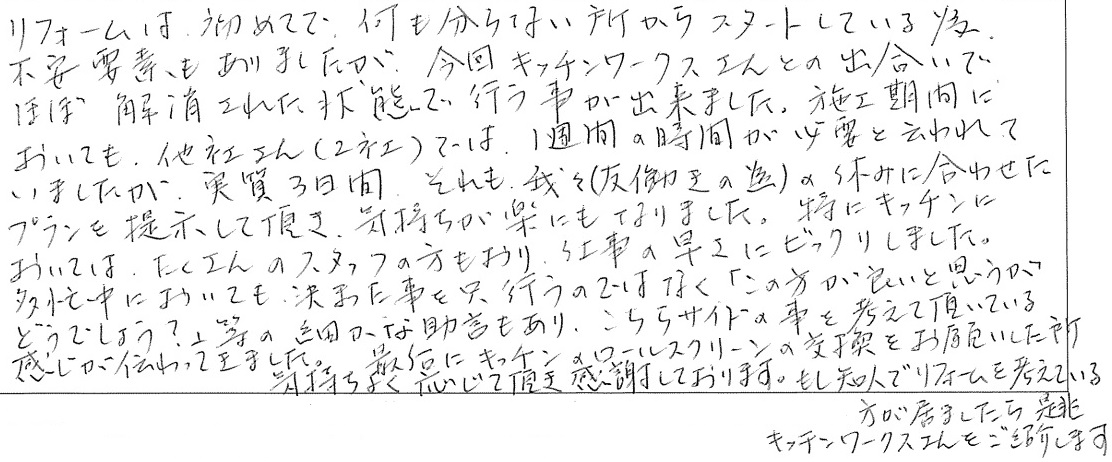 リフォームは、初めてで、何も分らない所からスタートしている為、
不安要素もありましたが、今回キッチンワークスさんとの出合いで
ほぼ解消された状態で行う事が出来ました。施工期間に
おいても、他社さん(2社)では、1週間の時間が必要と云われて
いましたが、実質3日間、それも、我々(友働きの為)の休みに合わせた
プランを提示して頂き、気持ちが楽にもなりました。特にキッチンに
おいては、たくさんのスタッフの方もおり、仕事の早さにビックリしました。
多忙中においても、決まった事を只、行うのではなく「この方が良いと思うが
どうでしょう?」等の細かな助言もあり、こちらサイドの事を考えて頂いている
感じが伝わって来ました。最后にキッチンのロールスクリーンの交換をお願いした所
気持ちよく応じて頂き感謝しております。もし知人でリフォームを考えている
方が居ましたら是非
キッチンワークスさんをご紹介します